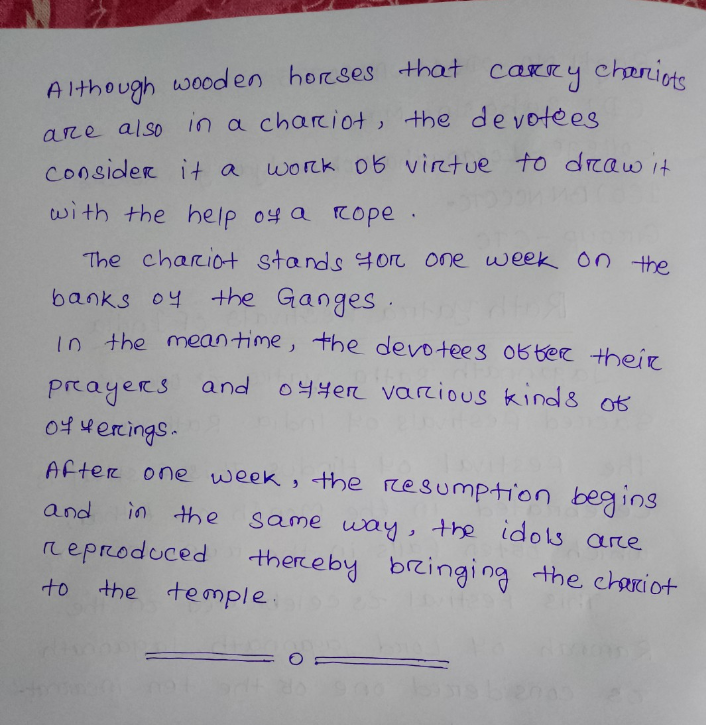 Although wooden horses that carry chariots
are also in a chariot, the devotees
consider it a work of virtue to draw it
with the help of a rope.
The chariot stands for one week on the
banks of the Ganges.
In the meantime, the devotees offer their
prayers and offer various kinds of
offerings.
After one week, the resumption begins
and in the same way, the idols are
reproduced thereby bringing the chariot
to the temple.